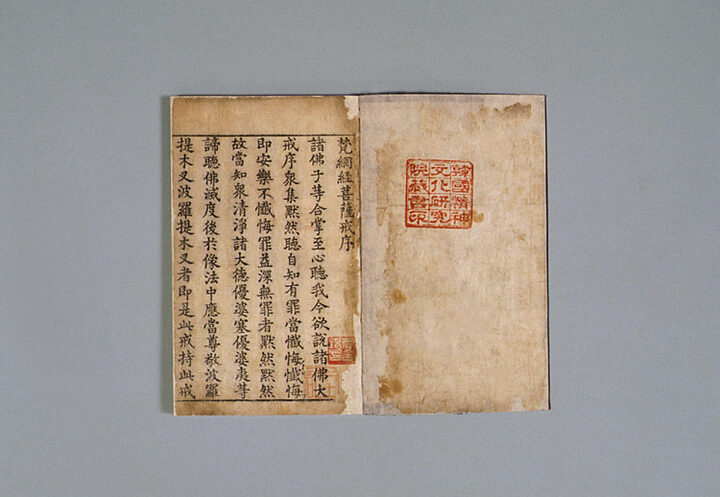 韓國精神
文化研究
院藏書印
梵網経菩薩戒序
諸佛子等合掌至心聽我今欲說諸佛大
戒序衆集默然聽自知有罪當懺悔懺悔
即安樂不懺悔罪益深無罪者默然默然
故當知衆清淨諸大德優婆塞優婆夷等
諦聽佛滅度後於像法中應當尊敬波羅
提木叉波羅提木叉者即是此戒持此戒